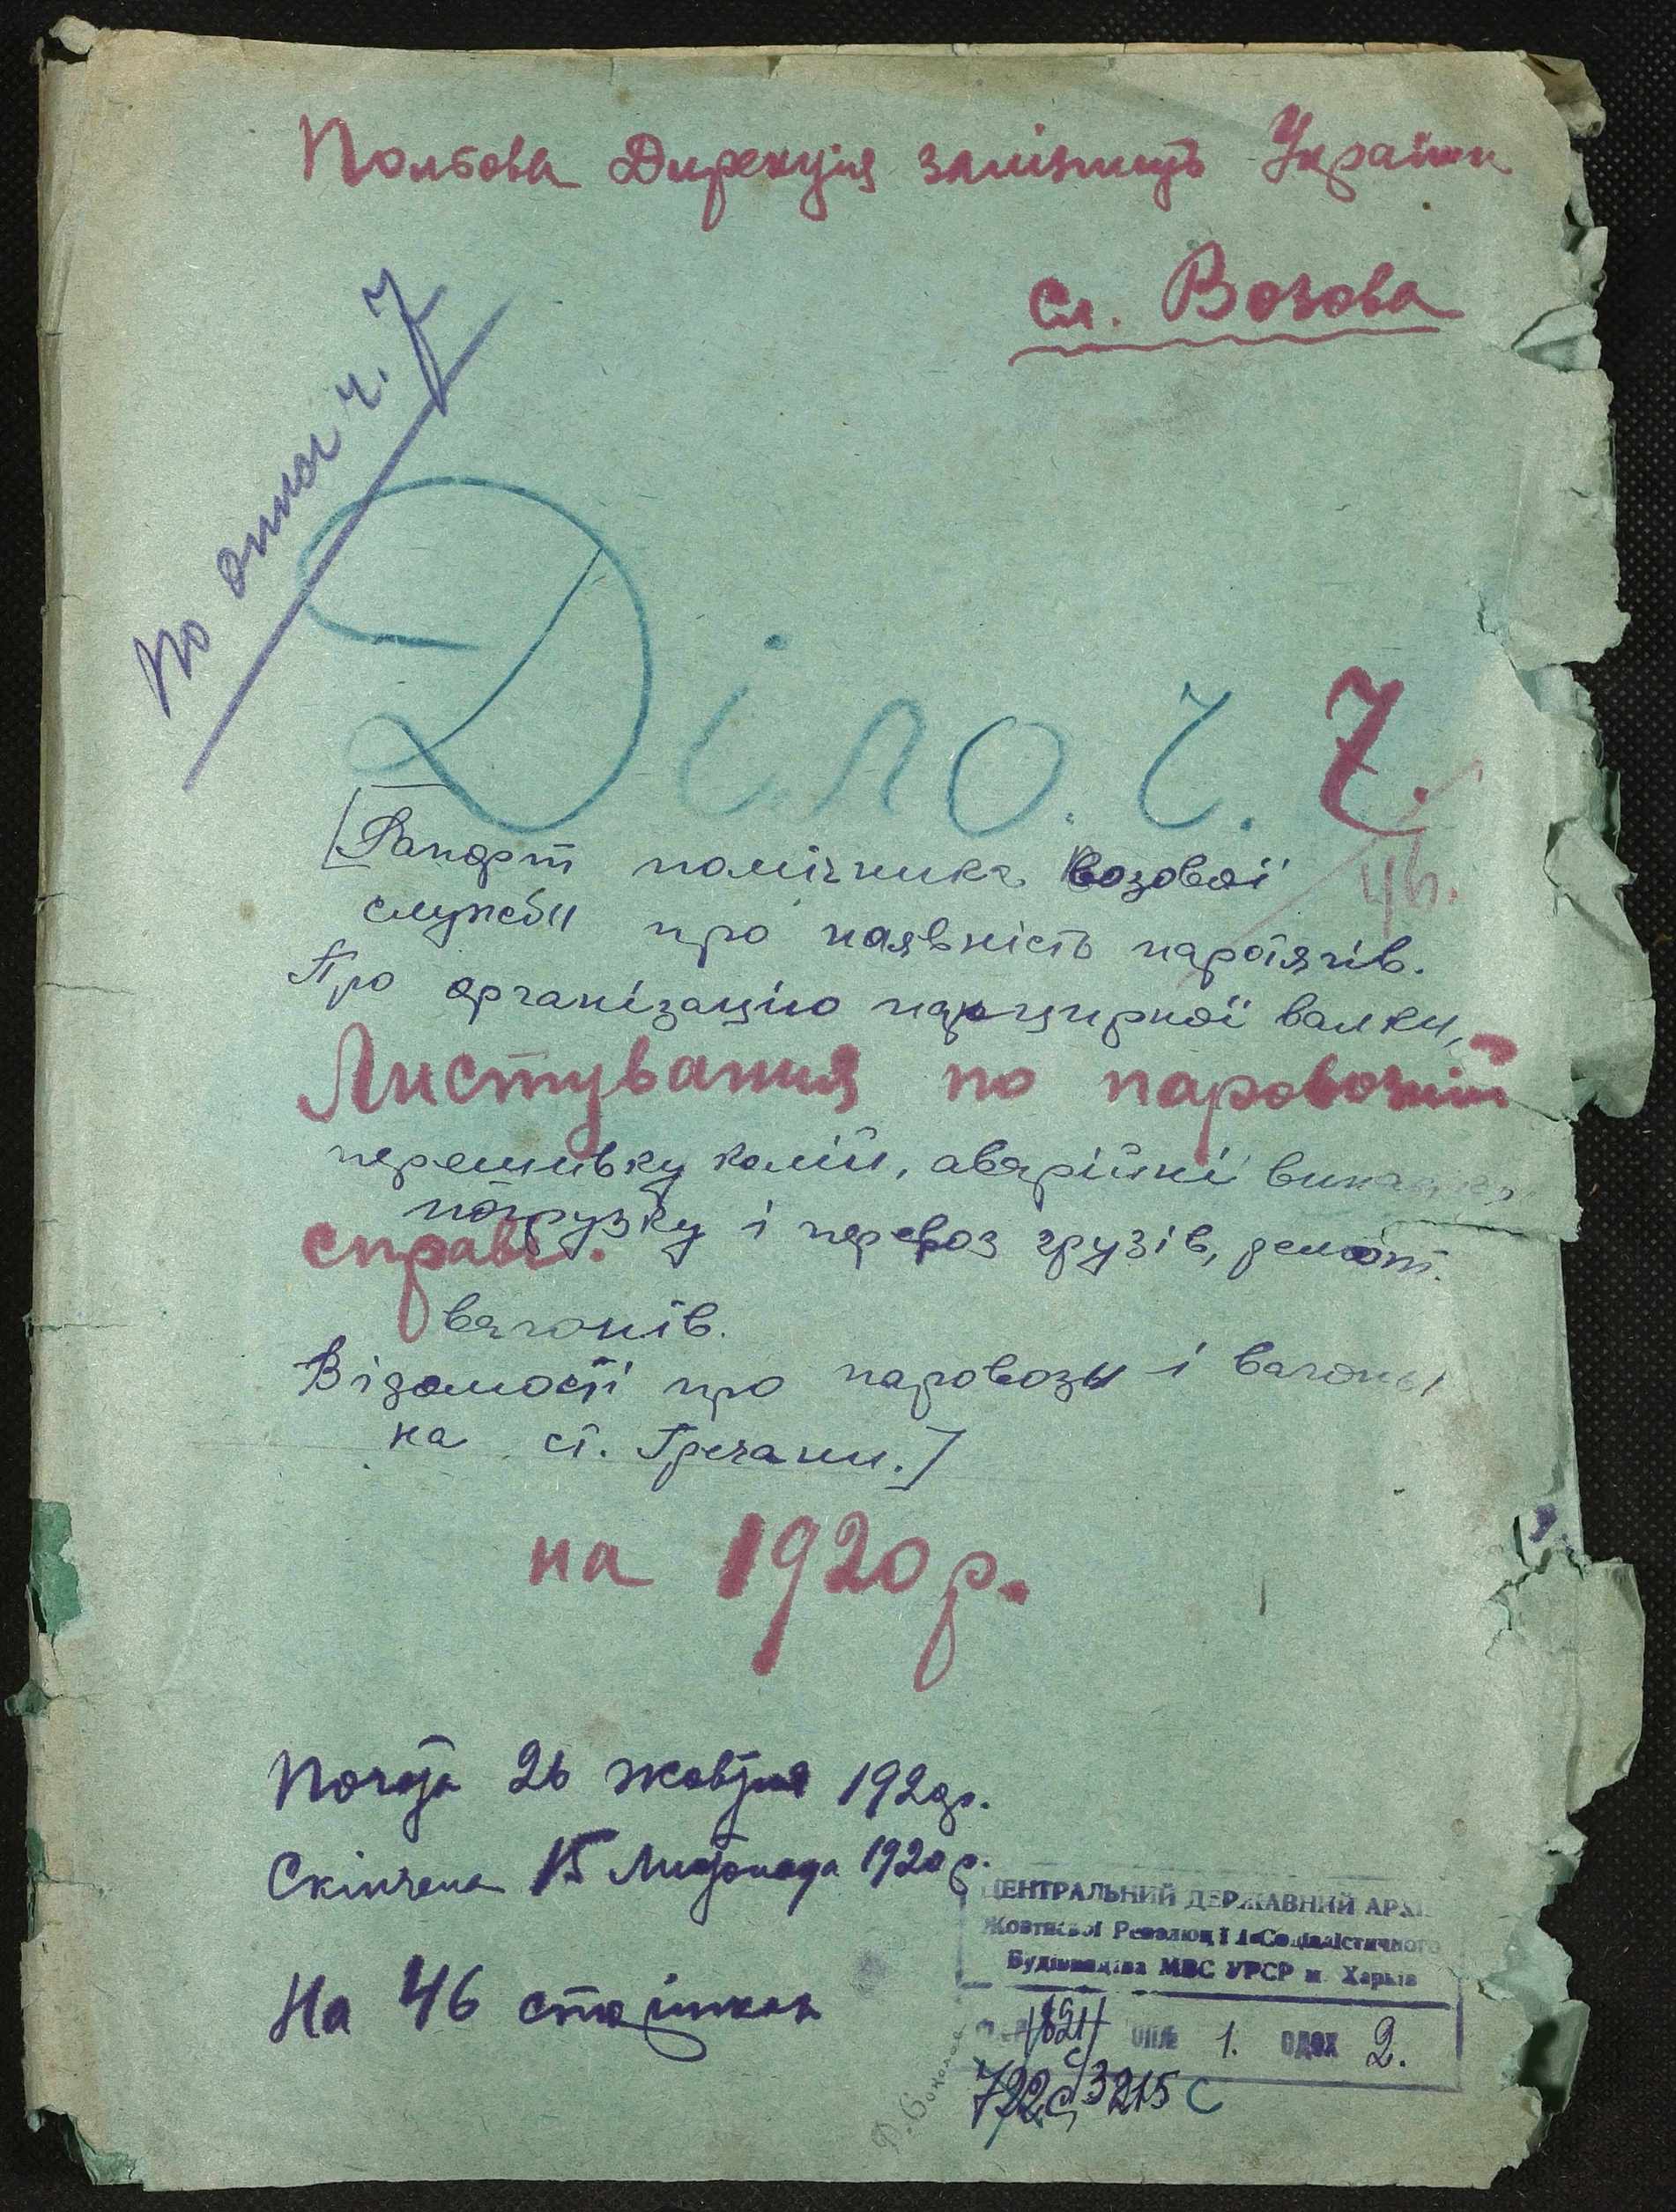 Польова Дирекція залізниць України
Сл. Возова
по опису ч. 7
Діло. ч. 7.
46.
[Рапорт помічника возової
служби про наявність паротягів.
Про організацію панцирної валки,
Листування по паровозній
перешивку колій, аварійні випадки,
погрузку і перевоз грузів, ремонт.
справі.
вагонів.
Відомості про паровозы і вагоны
на ст. Гречани.]
на 1920 р.
Почата 26 жовтня 1920 р.
Скінчена 15 Листопада 1920 р.
На 46 сторінках
ЦЕНТРАЛЬНИЙ ДЕРЖАВНИЙ АРХІ
Жовтневої Революції і Соціалістичного
Будівництва МВС УРСР м. Харків
1. ОДЗХ 2.
3215 С